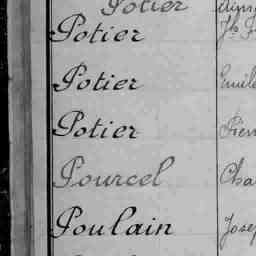 Potier
Potier
Potier Emile
Potier
Pourcel
Poulain